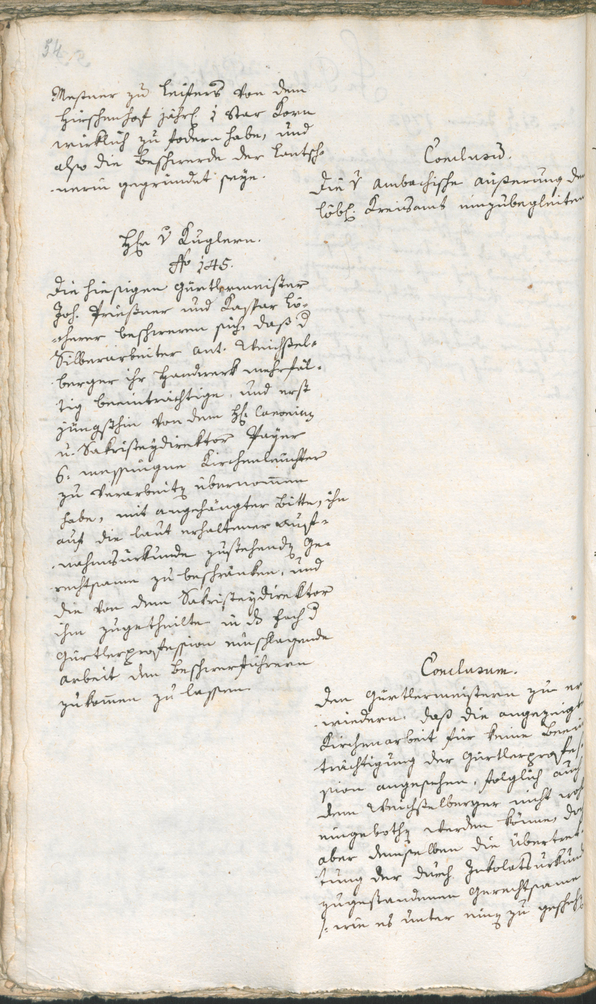 54
Mestner zu Leifers von dem
Hirschenhof jährl 1 Star Korn
wirklich zu fodern habe, und
also die Beschwerde der Lentsch-
nerin gegründet seye.
Conclusum.
Die v Ambachische Äußerung dem
löbl. Kreisamt einzubegleiten
Hr v Kuglern.
No 145.
Die hiesigen Gürtlermeister
Joh. Preußner und Kaspar Lö-
cherer beschweren sich, daß d
Silberarbeiter Ant. Weichsel-
berger ihr Handwerk mehrfäl-
tig beeinträchtige, und erst
jüngsthin von dem H
u. Sakristeydirektor Payer
6. messingne Kirchenleuchter
zu verarbeiten übernommen
habe, mit angehängter Bitte, ihn
auf die laut erhaltener Auf-
nahmsurkunde zustehende Ge-
rechtsame zu beschränken, und
die von dem Sakristeydirektor
ihm zugetheilte in ds Fach d
Gürtlerprofession einschlagende
Arbeit den Beschwerführern
zukommen zu lassen.
Conclusum.
Den Gürtlermeistern zu er-
wiedern, daß die angezeigte
Kirchenarbeit für keine Beein-
trächtigung der Gürtlerprofes-
sion angesehen, folglich auch
dem Weichselberger nicht wohl
eingebothen werden könne, daß
aber demselben die Übertret-
tung der durch Inkolatsurkund
zugestandenen Gerechtsame
wie es unter einem zu gescheh